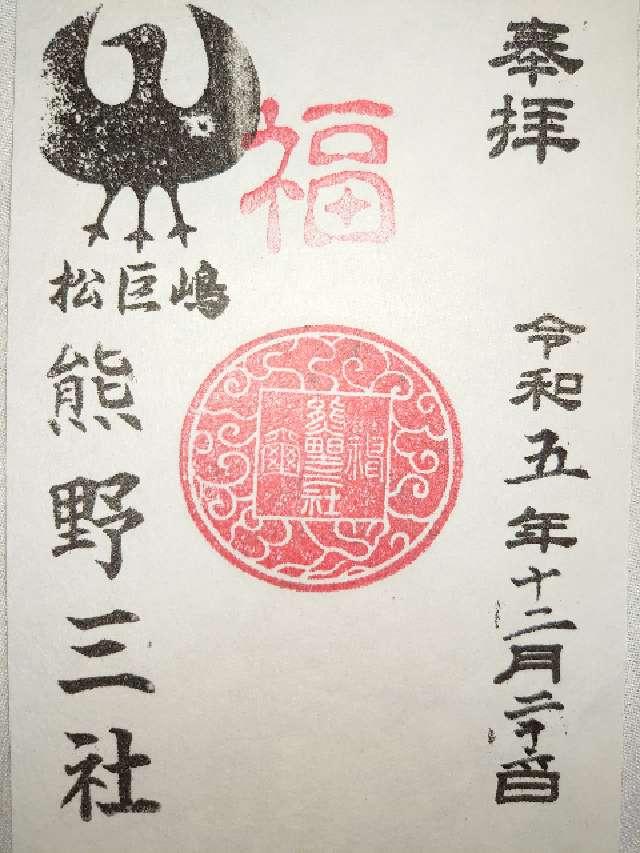 奉拝
令和五年十二月二十六日
福
松巨嶋
熊野三社